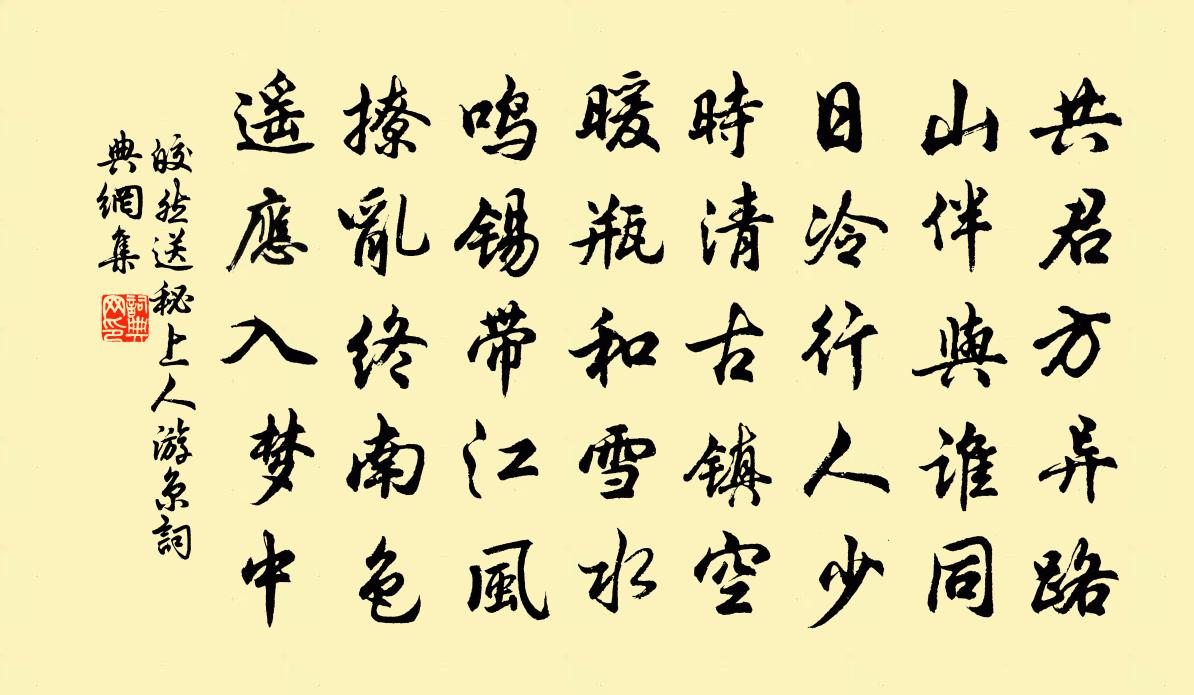 共君方异路
山伴與誰同
日冷行人少
時清古镇空
暖瓶和雪水
鸣锡带江風
撩亂终南色
遥應入梦中
皎然送秘上人游京詞
典網集
詞典网印